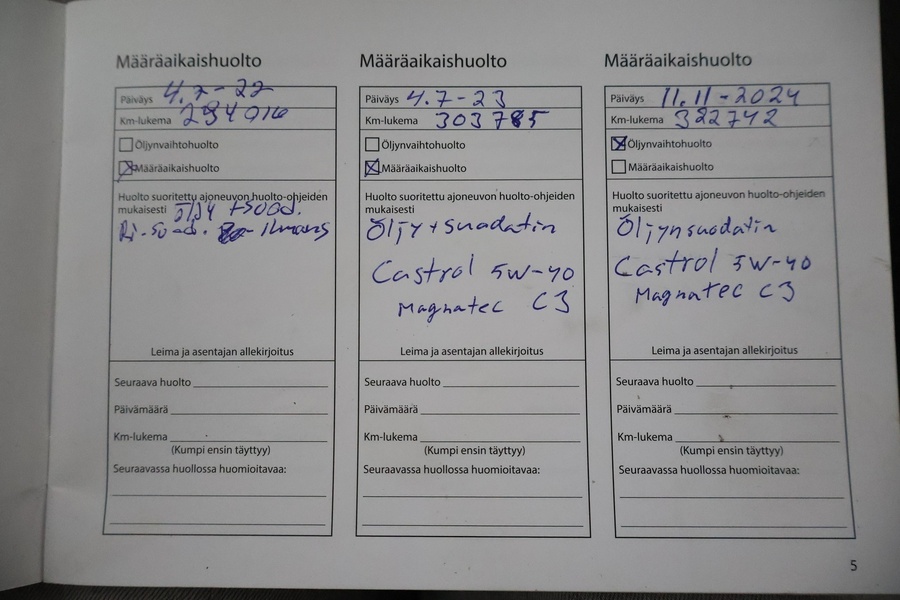 Määräaikaishuolto
Päiväys 4.7-22
Km-lukema 294016
Öljynvaihtohuolto
Määräaikaishuolto
Huolto suoritettu ajoneuvon huolto-ohjeiden
mukaisesti öljy + suod.
Ri-suod. Ilmans
Leima ja asentajan allekirjoitus
Seuraava huolto
Päivämäärä
Km-lukema
(Kumpi ensin täyttyy)
Seuraavassa huollossa huomioitavaa:
Määräaikaishuolto
Päiväys 4.7-23
Km-lukema 303785
Öljynvaihtohuolto
Määräaikaishuolto
Huolto suoritettu ajoneuvon huolto-ohjeiden
mukaisesti
Öljy + suodatin
Castrol 5W-40
Magnatec C3
Leima ja asentajan allekirjoitus
Seuraava huolto
Päivämäärä
Km-lukema
(Kumpi ensin täyttyy)
Seuraavassa huollossa huomioitavaa:
Määräaikaishuolto
Päiväys 11.11-2024
Km-lukema 322742
Öljynvaihtohuolto
Määräaikaishuolto
Huolto suoritettu ajoneuvon huolto-ohjeiden
mukaisesti
Öljynsuodatin
Castrol 5W-40
Magnatec C3
Leima ja asentajan allekirjoitus
Seuraava huolto
Päivämäärä
Km-lukema
(Kumpi ensin täyttyy)
Seuraavassa huollossa huomioitavaa:
5